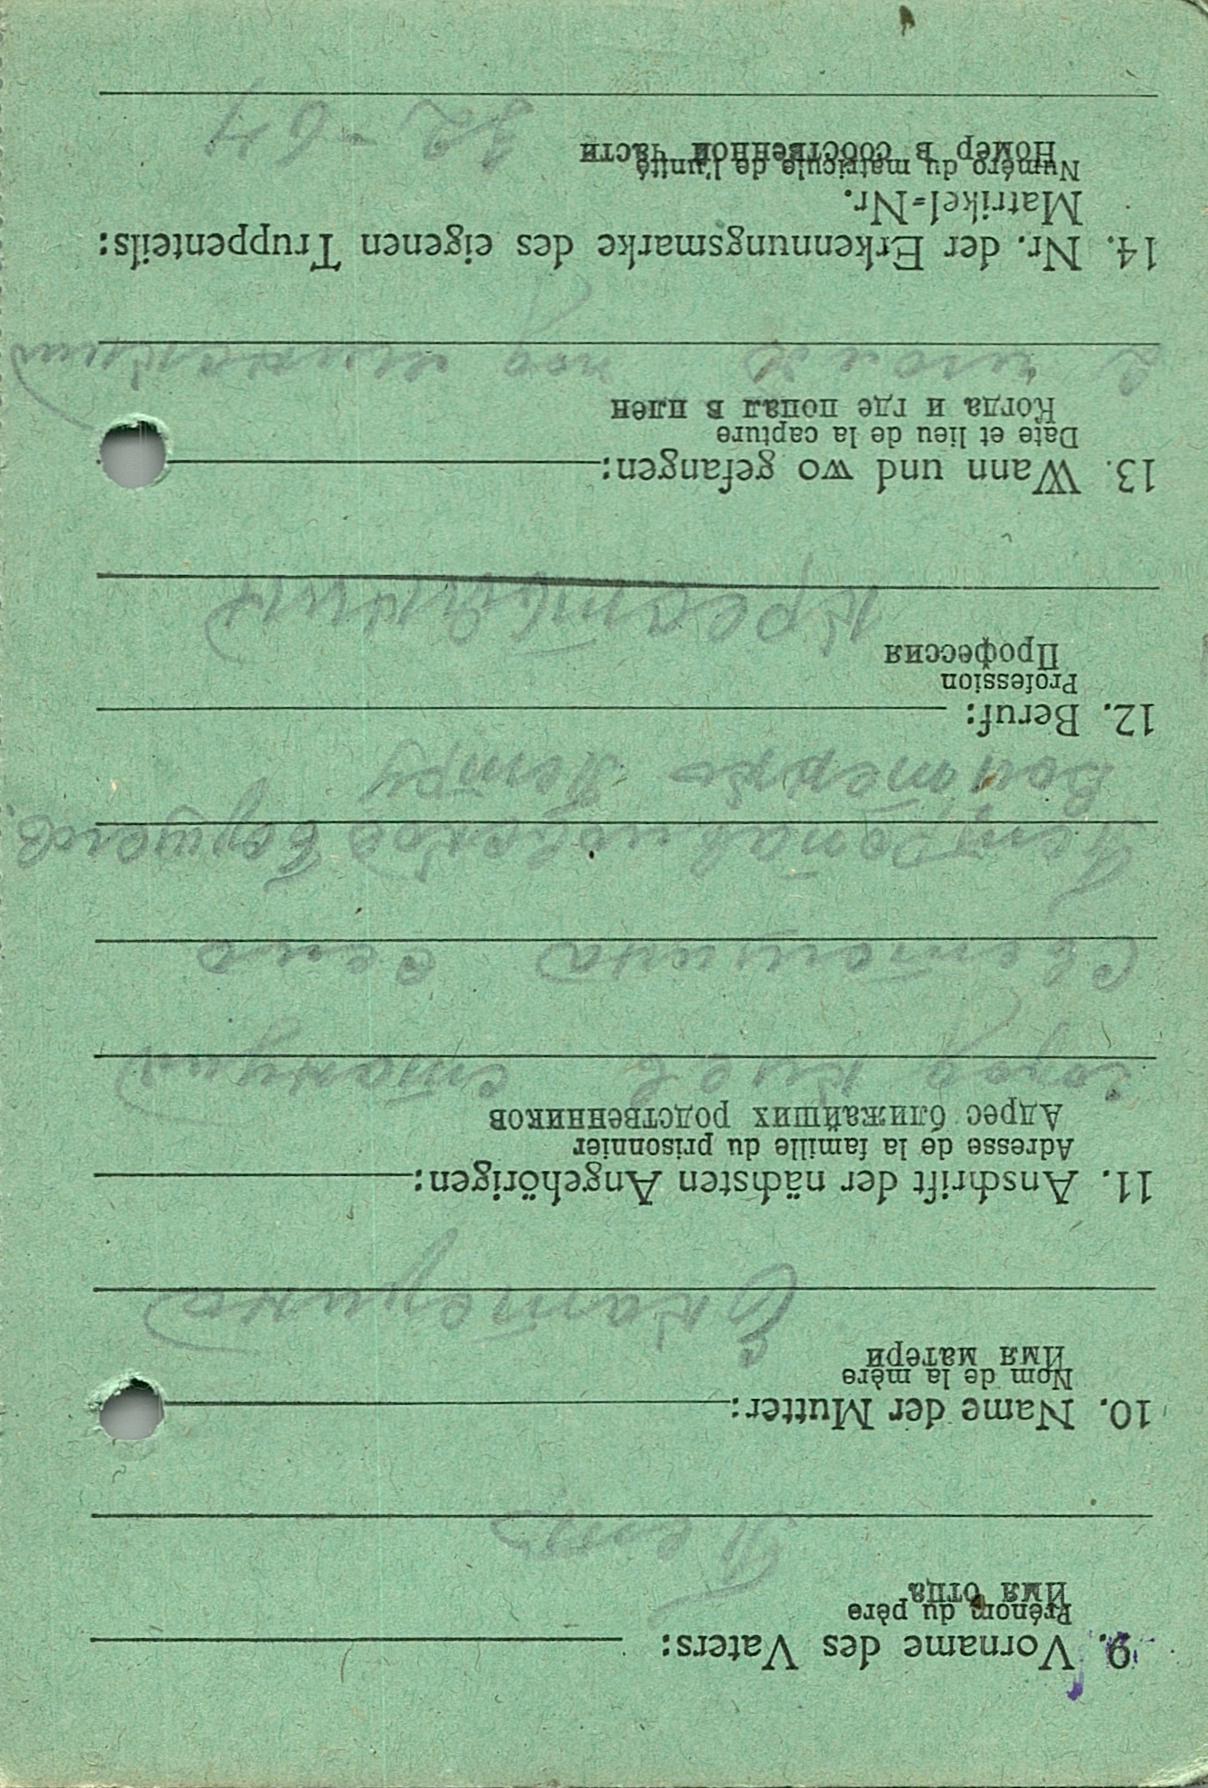 9. Vorname des Vaters:
Prénom du père
Имя отца
Петр
10. Name der Mutter:
Nom de la mère
Имя матери
Екатерина
11. Anschrift der nächsten Angehörigen:
Adresse de la famille du prisonnier
Адрес ближайших родственников
город Киев станция
село
Петру
12. Beruf:
Profession
Профессия
13. Wann und wo gefangen:
Date et lieu de la capture
Когда и где попал в плен
2 июля под
14. Nr. der Erkennungsmarke des eigenen Truppenteils:
Matrikel-Nr.
Numéro du matricule de l'unité
Номер в собственной части
32-64